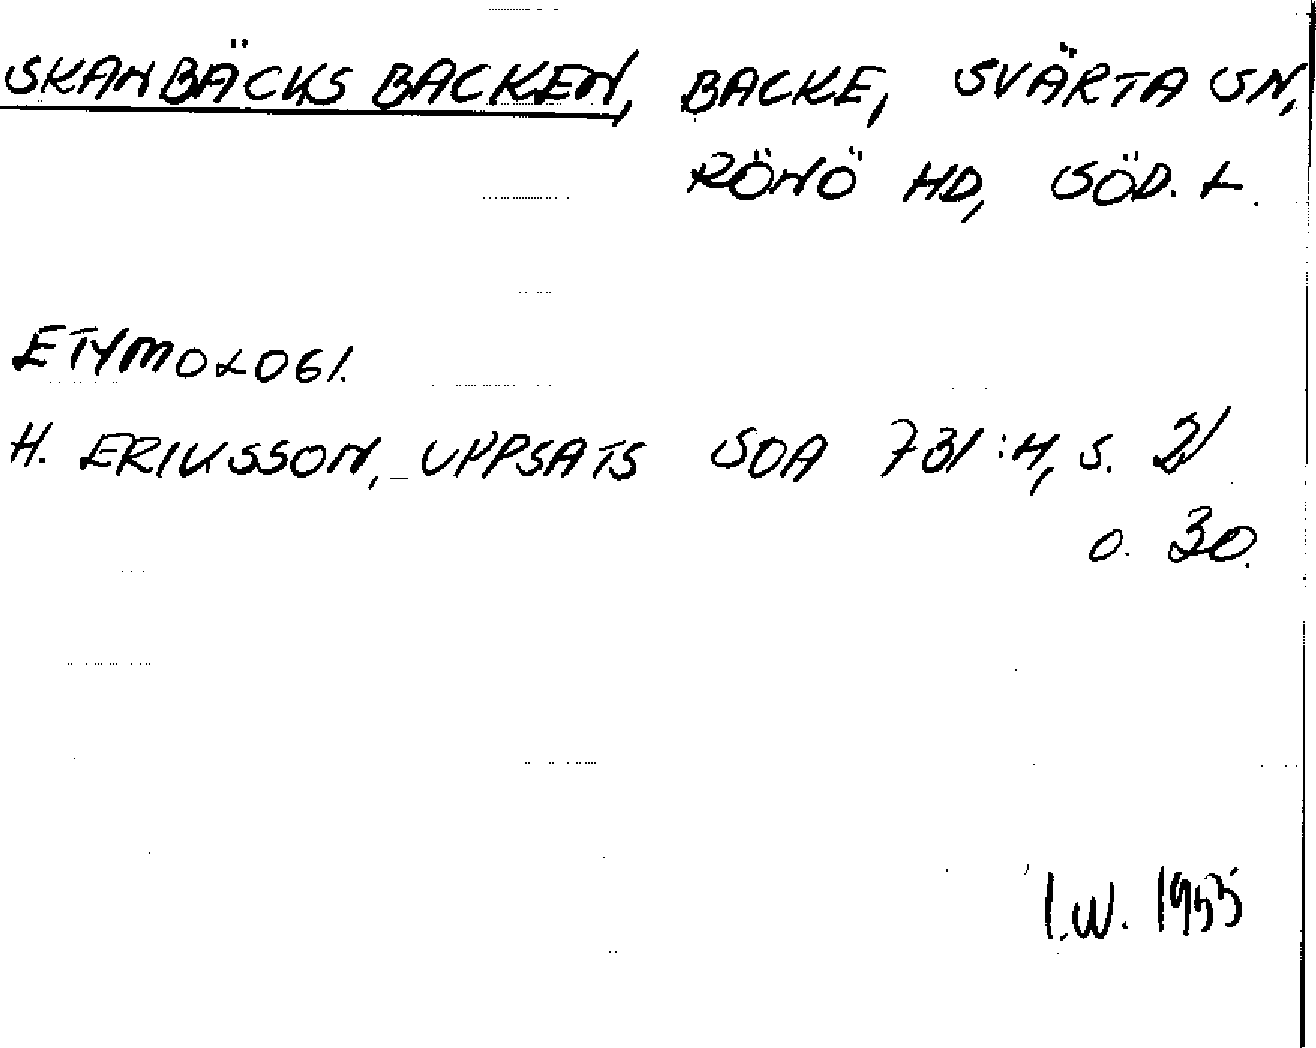 SKANBÄCKS BACKEN, BACKE, SVÄRTA SN,
RÖNÖ HD, SÖD. L.
ETYMOLOGI.
H. ERIKSSON, UPPSATS SOA 731:4, S. 21
O. 30.
I.W. 1955